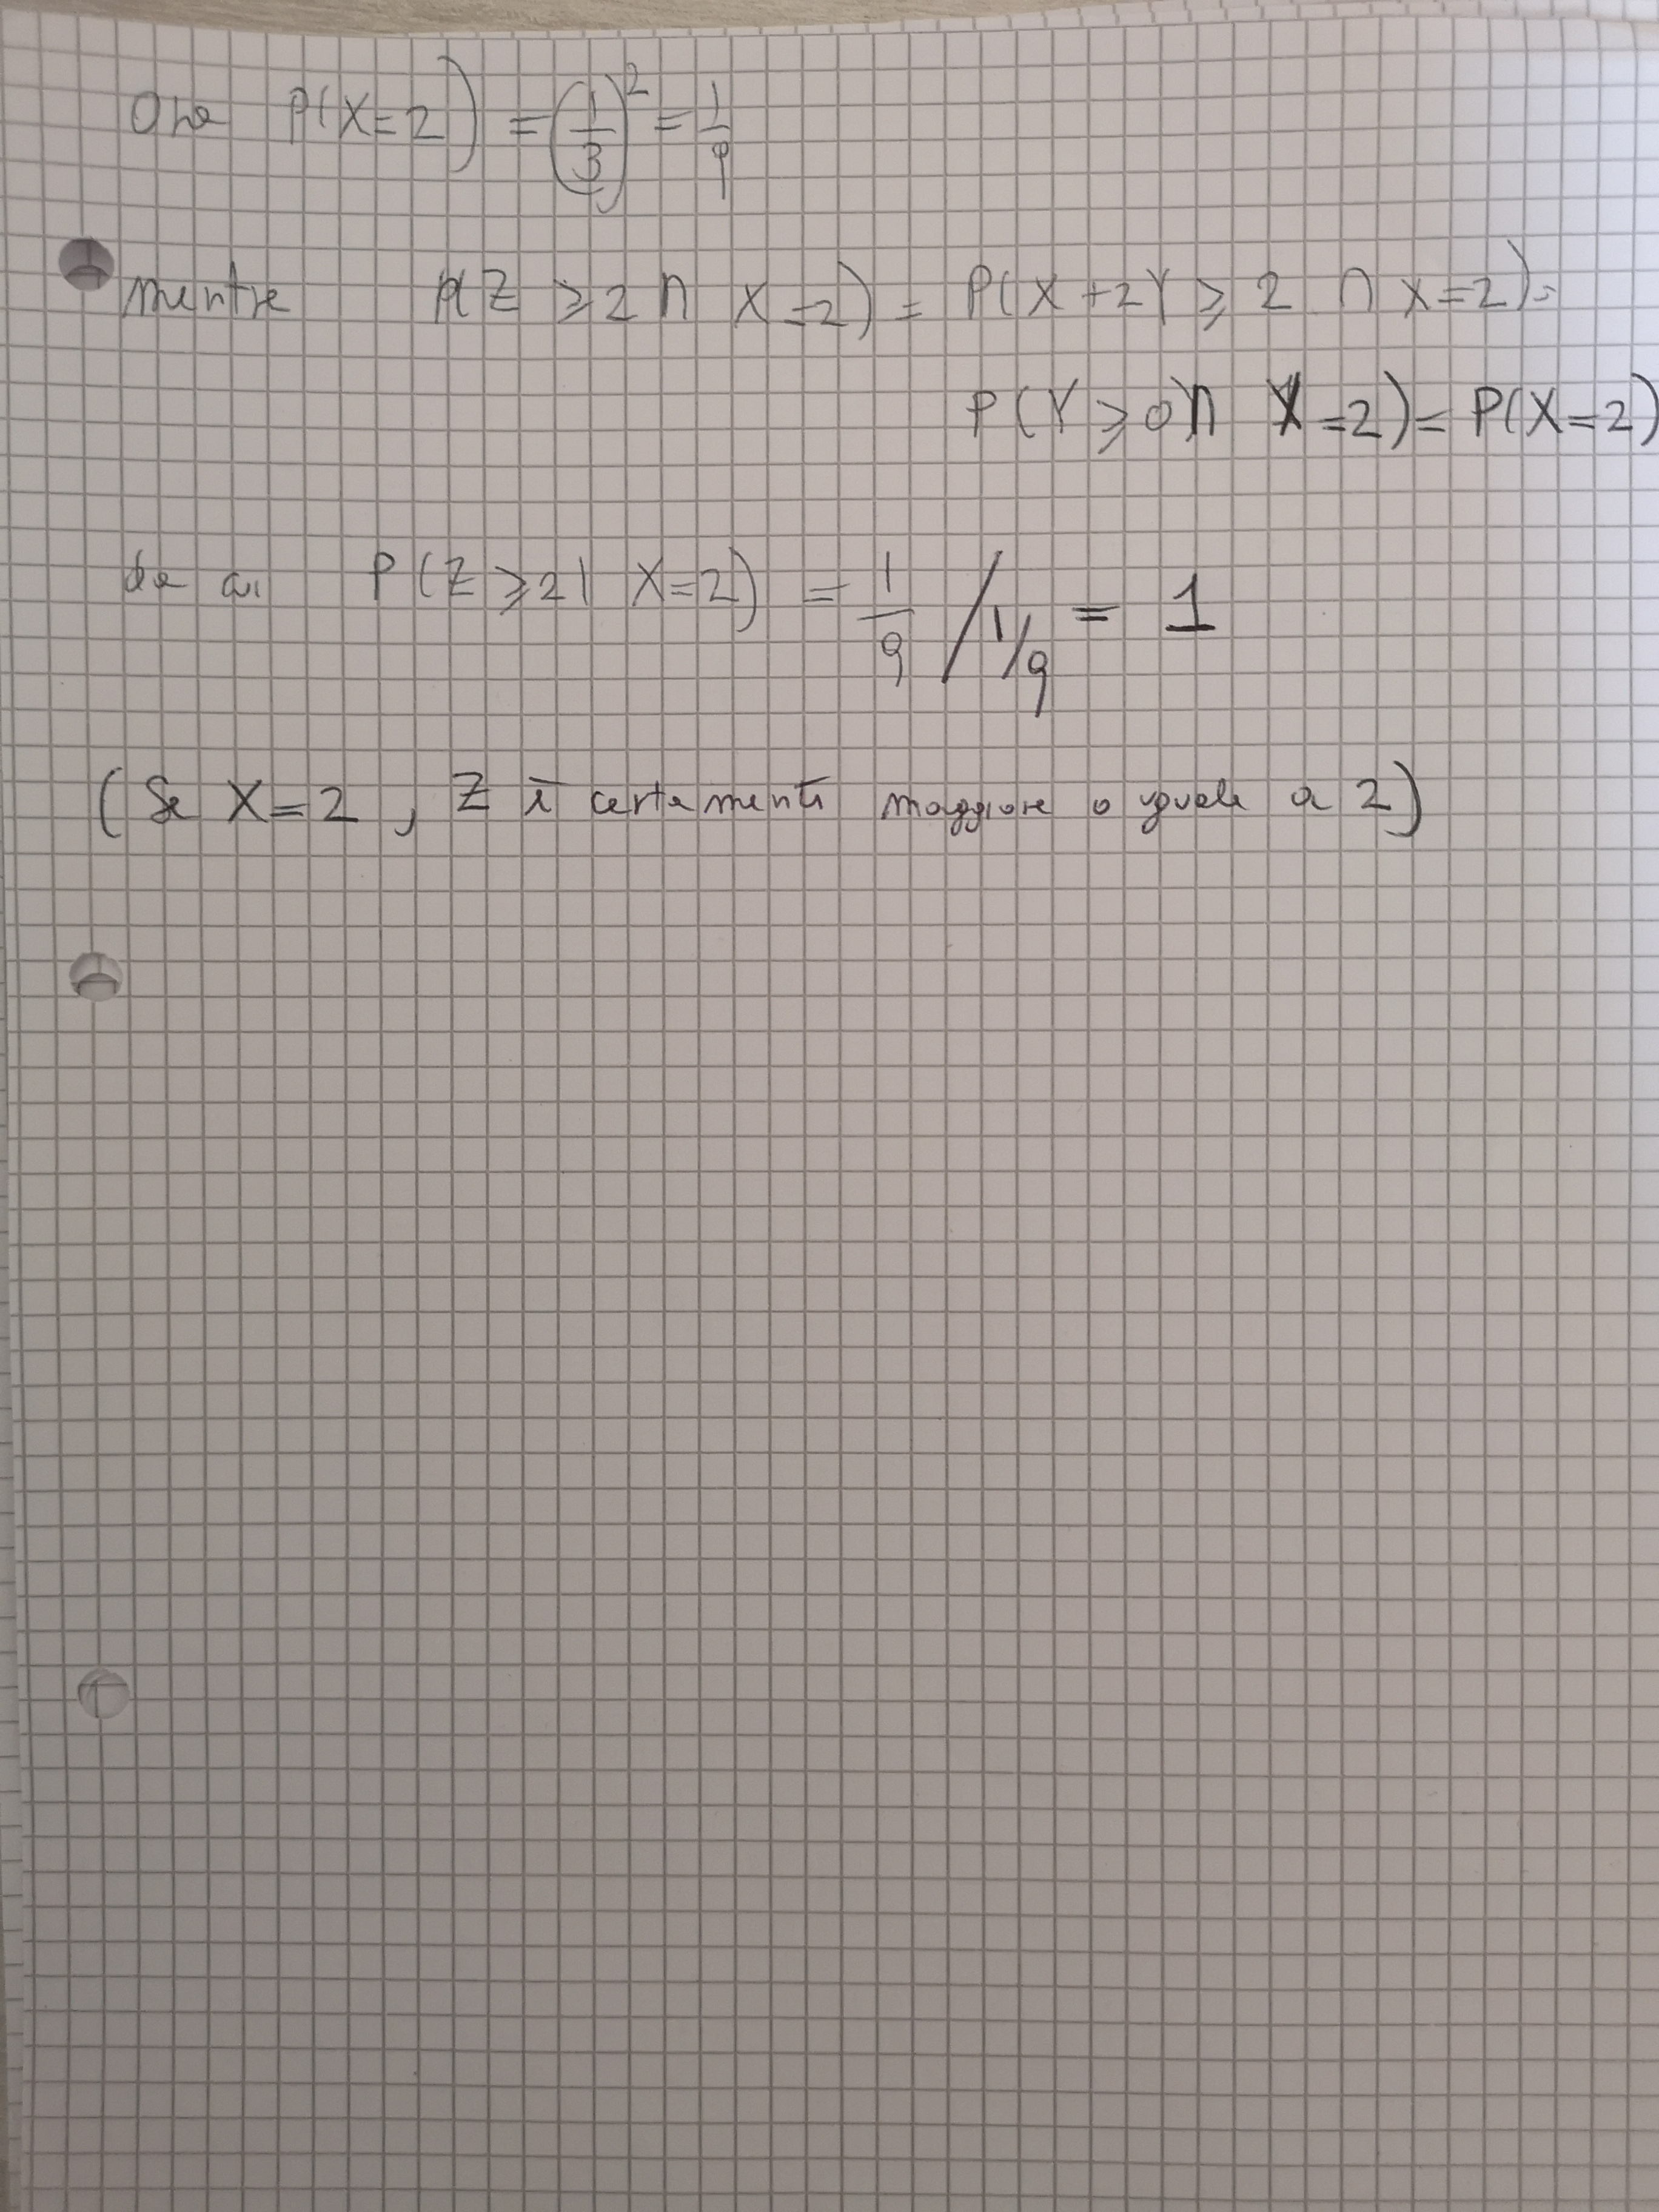 Ora P(X=2) = (1/3)^2 = 1/9
mentre P(Z ≥ 2 ∩ X=2) = P(X+2Y ≥ 2 ∩ X=2) =
P(Y ≥ 0) ∩ X=2) = P(X=2)
da cui P(Z ≥ 2 | X=2) = 1/9 / 1/9 = 1
(Se X=2, Z è certamente maggiore o uguale a 2)